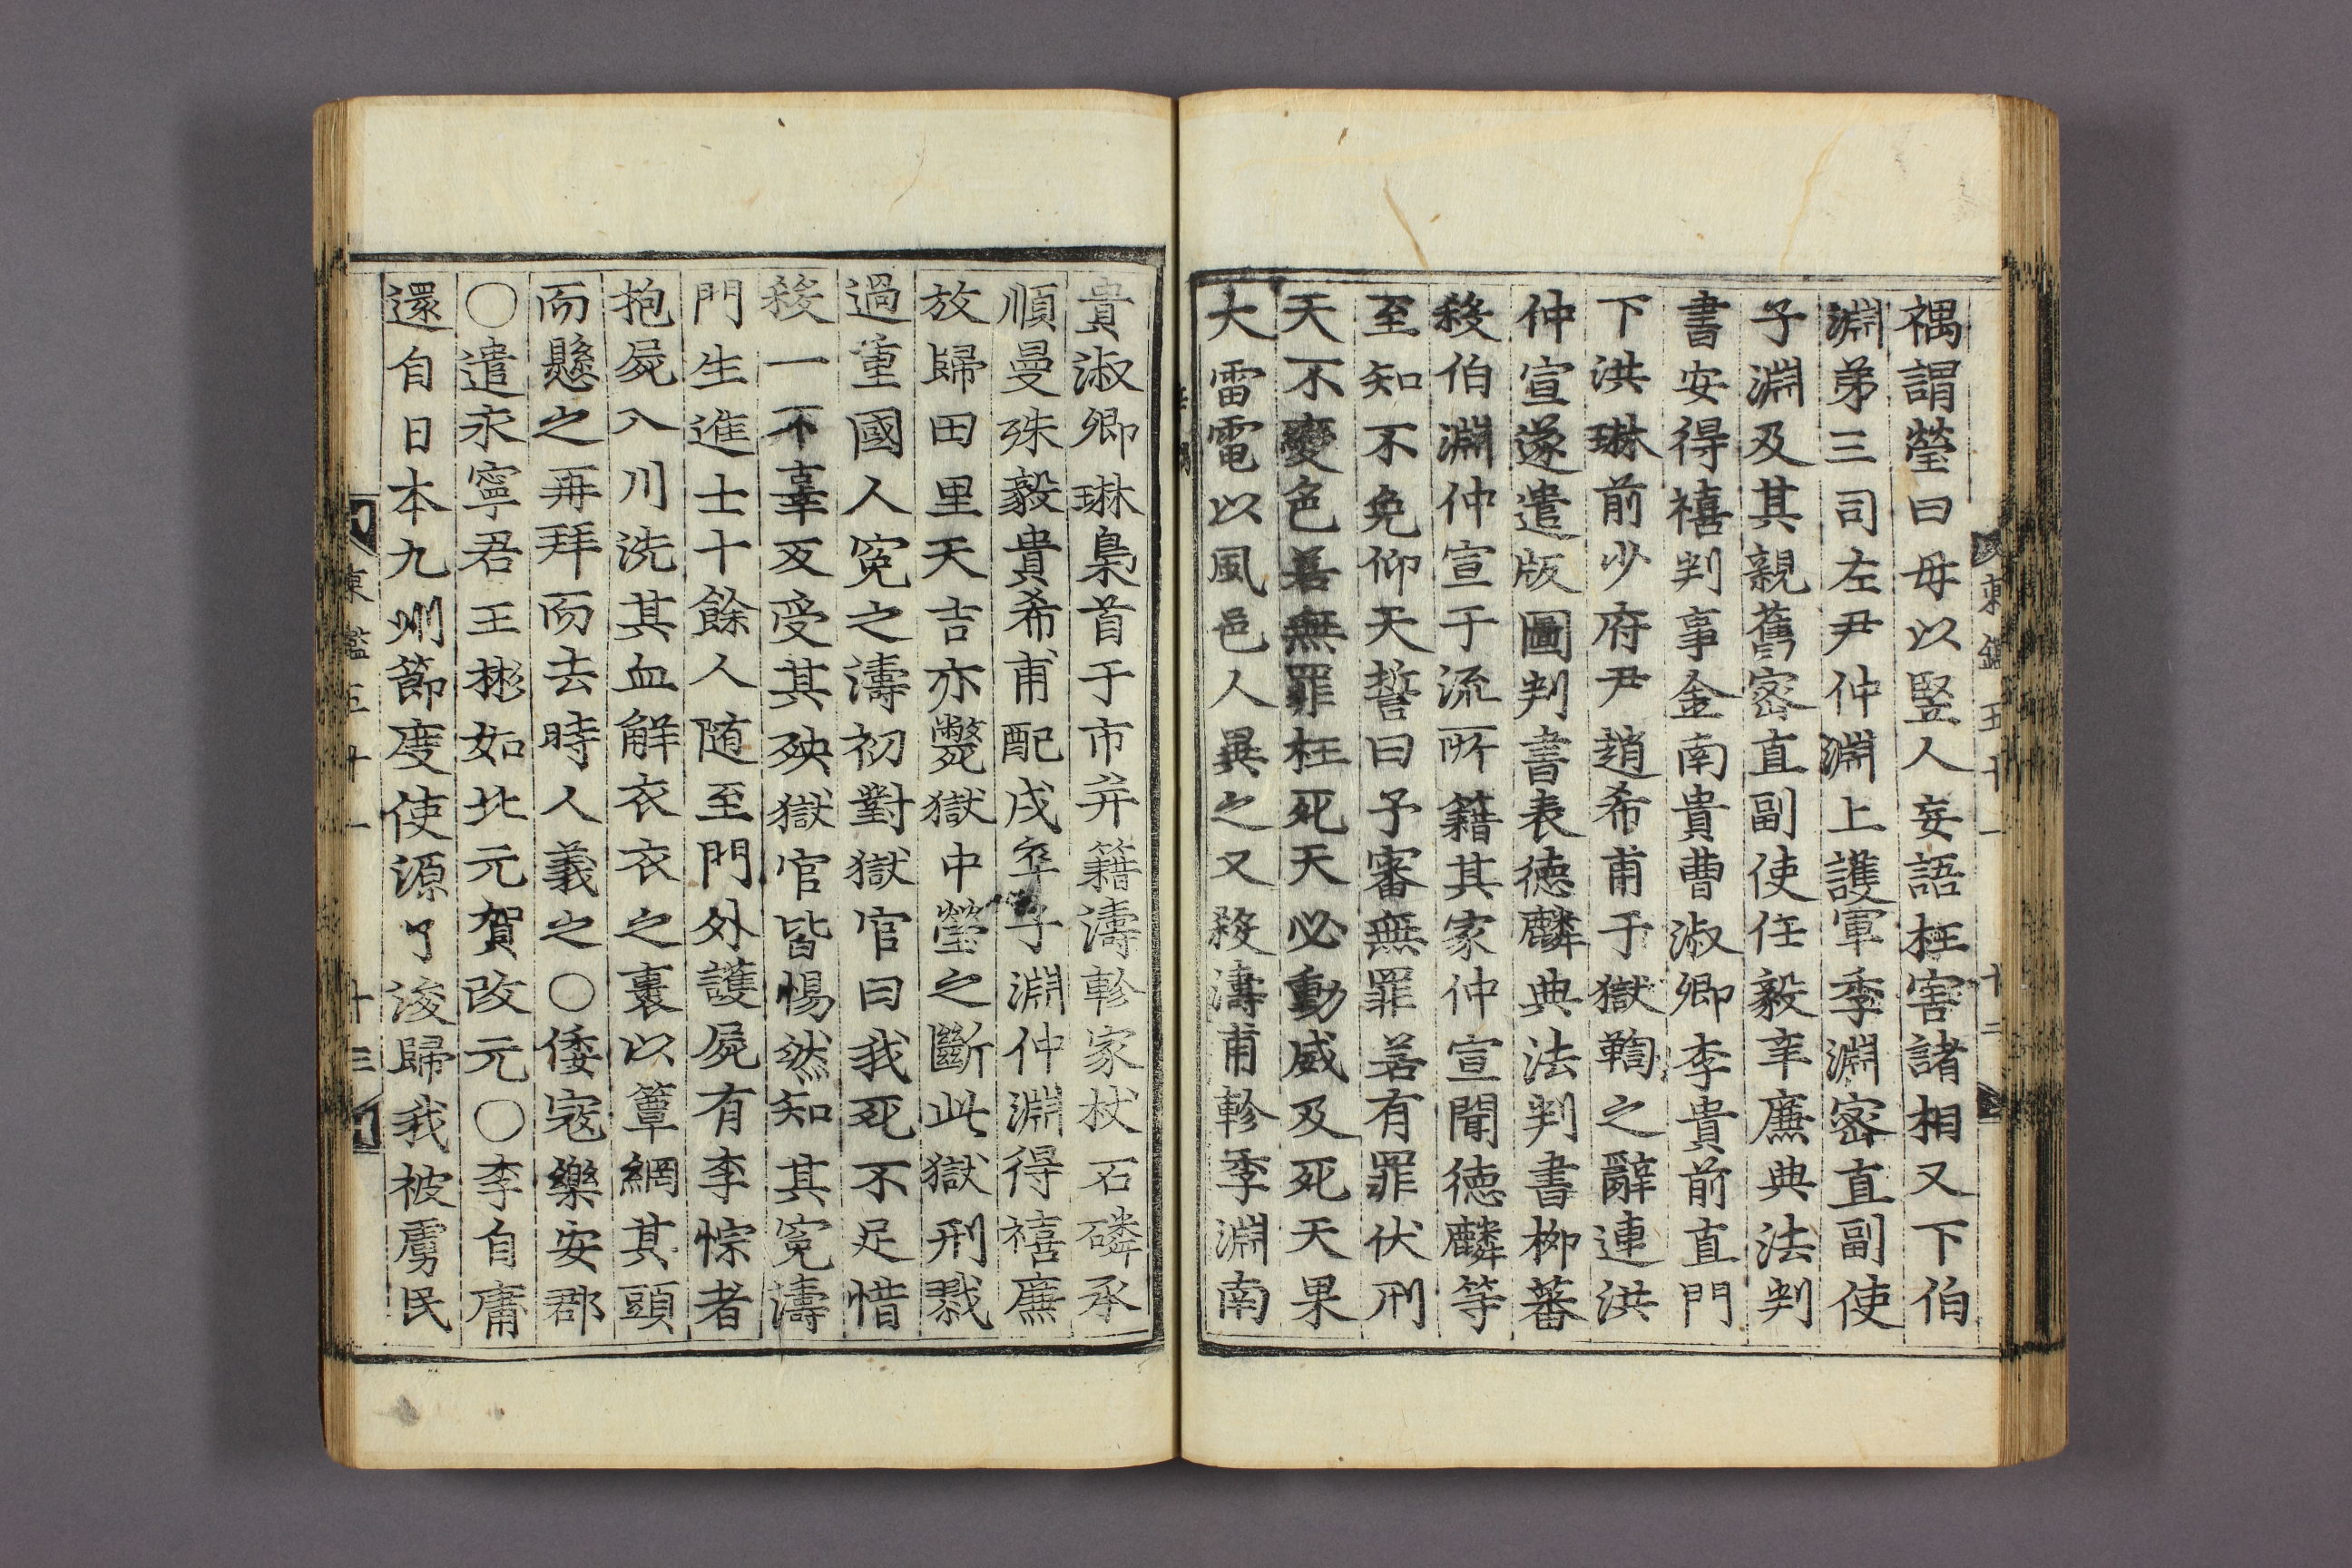 禑謂瑩曰毋以竪人妄語枉害諸相又下伯
淵弟三司左尹仲淵上護軍季淵密直副使
子淵及其親舊密直副使任毅辛廉典法判
書安得禧判事金南貴曹淑卿李貴前直門
下洪琳前少府尹趙希甫于獄鞫之辭連洪
仲宣遂遣版圖判書表德麟典法判書柳蕃
殺伯淵仲宣于流所籍其家仲宣聞德麟等
至知不免仰天誓曰予審無罪若有罪伏刑
天不變色若無罪枉死天必動威及死天果
大雷電以風邑人異之又殺濤甫軫季淵南
東鑑五十一 十二
貴淑卿琳梟首于市并籍濤軫家杖石磷承
順曼殊毅貴希甫配戍卒子淵仲淵得禧廉
放歸田里天吉亦斃獄中瑩之斷此獄刑戮
過重國人寃之濤初對獄官曰我死不足惜
殺一不辜反受其殃獄官皆惕然知其寃濤
門生進士十餘人随至門外護屍有李悰者
抱屍入川洗其血解衣衣之裹以簟網其頭
而懸之再拜而去時人義之○倭寇樂安郡
○遣永寧君王彬如北元賀改元○李自庸
還自日本九州節度使源了浚歸我被虜民
東鑑五十一 十三